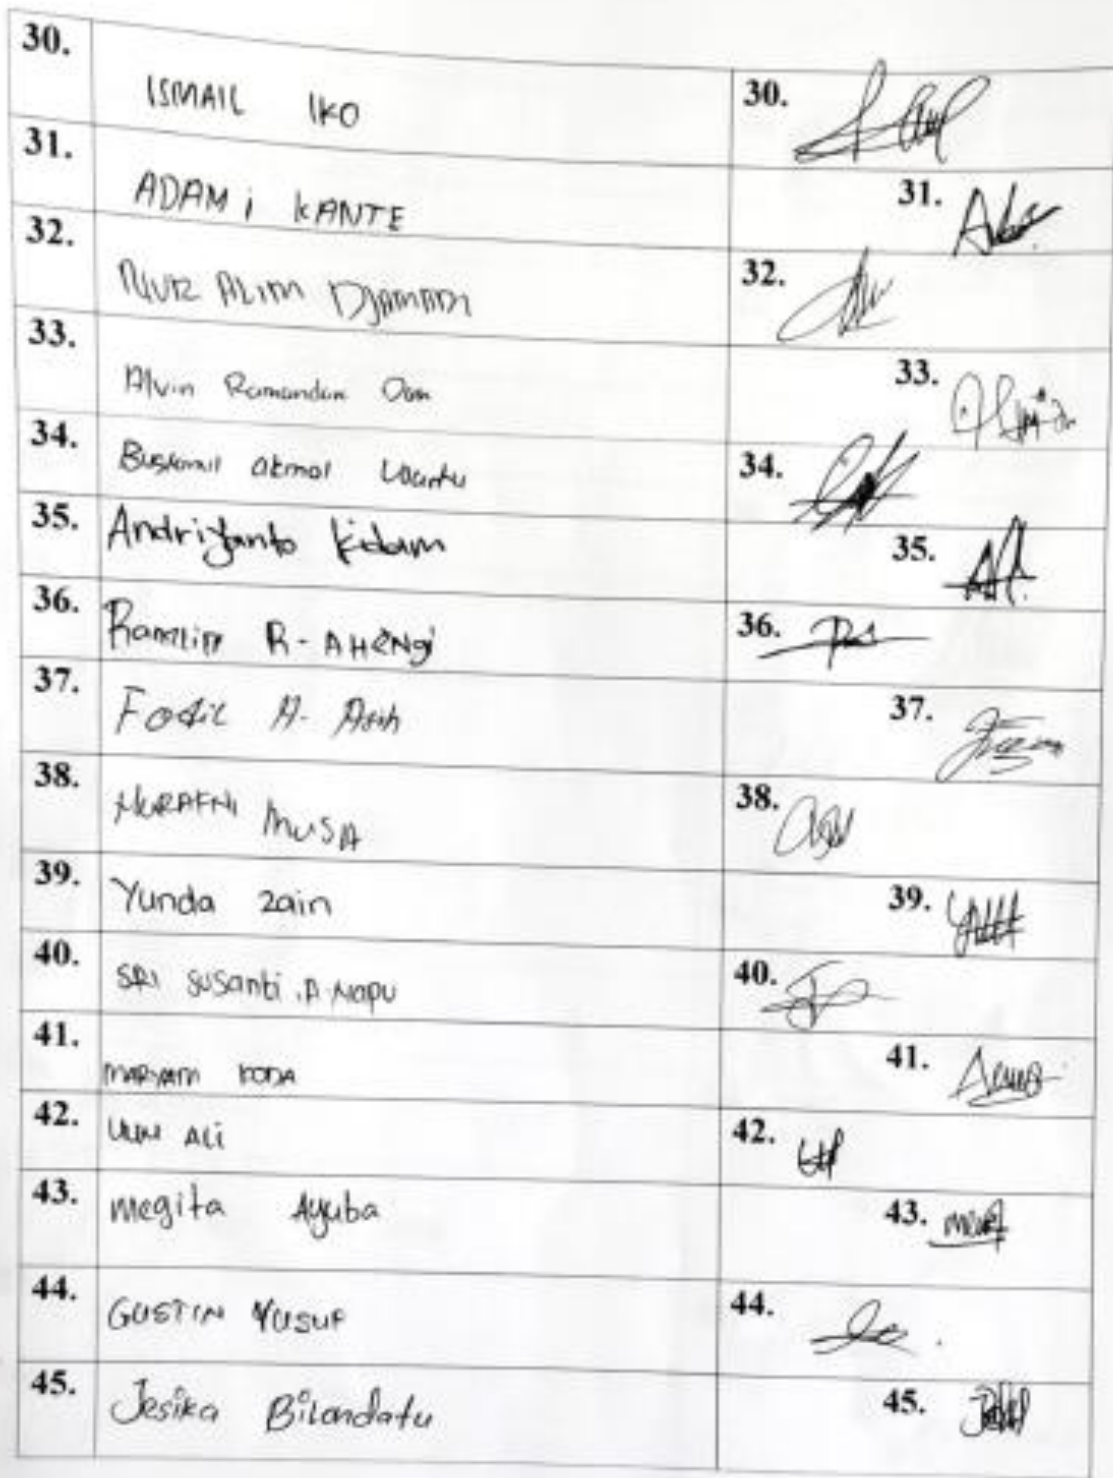 30. ISMAIL IKO 30.
31. ADAMi KANTE 31.
32. NUR ALIM DJAMADI 32.
33. Alvin Ramandan 33.
34. akmal 34.
35. Andriyanto Kidam 35.
36. R-AHENgi 36.
37. Fadil A- 37.
38. NURAFNI MUSA 38.
39. Yunda Zain 39.
40. SRI SUSanti .A.Napu 40.
41. MARYAM KODA 41.
42. ULIN ALi 42.
43. megita Ayuba 43.
44. GUSTIN YUSUF 44.
45. Jesika Bilondatu 45.